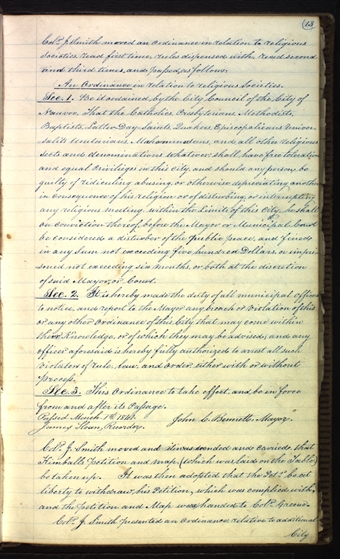 13
Col. J. Smith moved an Ordinance in relation to religious
Societies, read first time, rules dispensed with, read second
and third times, and passed, as follows:
An Ordinance in relation to religious Societies.
Sec. 1. Be it ordained, by the City Council of the City of
Nauvoo, That the Catholics, Presbyterians, Methodists,
Baptists, Latter-Day Saints, Quakers, Episcopalians, Univer-
salists Unitarians, Mahommedans, and all other religious
sects and denominations whatever, shall have free toleration
and equal Privileges in this city, and should any person be
guilty of ridiculing, abusing, or otherwise depreciating another
in consequence of his religion or of disturbing, or interrupting
any religious meeting, within the Limits of this City, he shall
on conviction thereof, before the Mayor or Municipal Court
be considered a disturber of the public peace, and fined
in any Sum not exceeding five hundred Dollars, or impri-
soned not exceeding six months, or both at the discretion
of said Mayor, or Court.
Sec. 2. It is hereby made the duty of all municipal officers
to notice, and report to the Mayor any breach or Violation of this
or any other Ordinance of this City that may come within
their Knowledge, or of which they may be advised; and any
officer aforesaid is hereby fully authorized to arrest all such
Violators of rule, Law, and order, either with or without
process.
Sec. 3. This Ordinance to take effect, and be in force
from and after its Passage.
Passed March 1st 1841. John C. Bennett, Mayor
James Sloan, Recorder
Col. J. Smith moved and it was seconded and carried, that
Kimball's Petition and map, (which was laid on the Table)
be taken up. It was then adopted that the Petr. be at
liberty to withdraw his Petition, which was complied with,
and the Petition and Map was handed to Col.
Col. J. Smith presented an Ordinance relative to additional
City